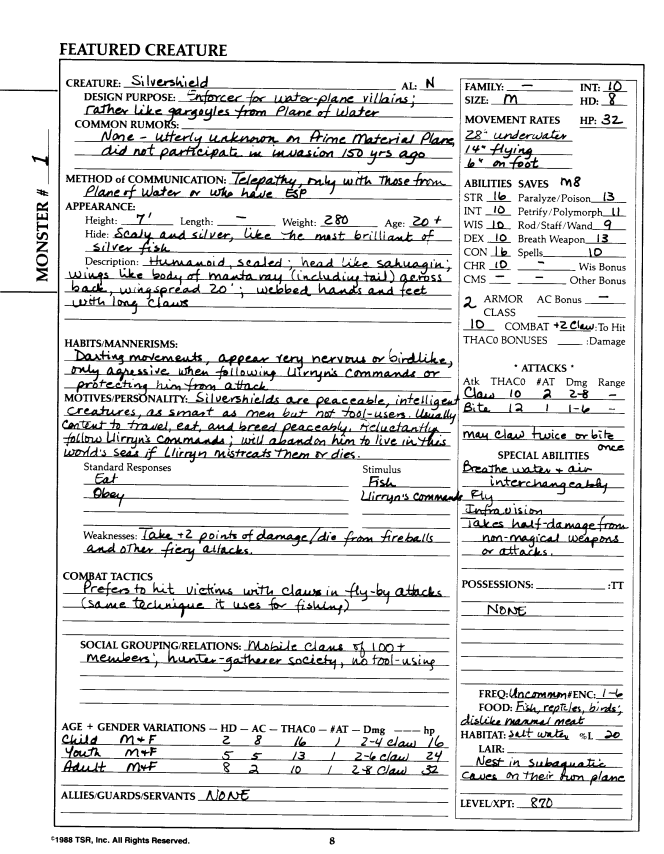 FEATURED CREATURE
MONSTER # 1
CREATURE: Silvershield AL: N
DESIGN PURPOSE: Enforcer for water-plane villains;
rather like gargoyles from Plane of Water
COMMON RUMORS:
None - utterly unknown on Prime Material Plane,
did not participate in invasion 150 yrs ago
METHOD of COMMUNICATION: Telepathy, only with those from
Plane of Water or who have ESP
APPEARANCE:
Height: 7' Length: — Weight: 280 Age: 20+
Hide: Scaly and silver, like the most brilliant of
silver fish
Description: Humanoid, scaled; head like sahuagin;
wings like body of manta ray (including tail) across
back, wingspread 20'; webbed hands and feet
with long claws
HABITS/MANNERISMS:
Darting movements, appear very nervous or birdlike,
only agressive when following Llirryn's commands or
protecting him from attack
MOTIVES/PERSONALITY: Silvershields are peaceable, intelligent
creatures, as smart as men but not tool-users. Usually
content to travel, eat, and breed peaceably. Reluctantly
follow Llirryn's commands; will abandon him to live in this
world's seas if Llirryn mistreats them or dies.
Standard Responses Stimulus
Eat Fish
Obey Llirryn's commands
Weaknesses: Take +2 points of damage/die from fireballs
and other fiery attacks.
COMBAT TACTICS
Prefers to hit victims with claws in fly-by attacks
(same technique it uses for fishing)
SOCIAL GROUPING/RELATIONS: Mobile clans of 100+
members; hunter-gatherer society, no tool-using
AGE + GENDER VARIATIONS — HD — AC — THAC0 — #AT — Dmg ——— hp
Child M+F 2 8 16 1 2-4 claw 16
Youth M+F 5 5 13 1 2-6 claw 24
Adult M+F 8 2 10 1 2-8 claw 32
ALLIES/GUARDS/SERVANTS NONE
FAMILY: — INT: 10
SIZE: M HD: 8
MOVEMENT RATES HP: 32
28" underwater
14" flying
6" on foot
ABILITIES SAVES M8
STR 16 Paralyze/Poison 13
INT 10 Petrify/Polymorph 11
WIS 10 Rod/Staff/Wand 9
DEX 10 Breath Weapon 13
CON 16 Spells 10
CHR 10 — Wis Bonus
CMS — — Other Bonus
2 ARMOR AC Bonus —
CLASS
10 COMBAT +2 Claw :To Hit
THAC0 BONUSES :Damage
* ATTACKS *
Atk THAC0 #AT Dmg Range
Claw 10 2 2-8 —
Bite 12 1 1-6 —
may claw twice or bite
once
SPECIAL ABILITIES
Breathe water + air
interchangeably
Fly
Infravision
Takes half-damage from
non-magical weapons
or attacks.
POSSESSIONS: :TT
NONE
FREQ: Uncommon #ENC: 1-6
FOOD: Fish, reptiles, birds;
dislike mammal meat
HABITAT: salt water %L 20
LAIR:
Nest in subaquatic
caves on their own plane
LEVEL/XPT: 870
©1988 TSR, Inc. All Rights Reserved.
8